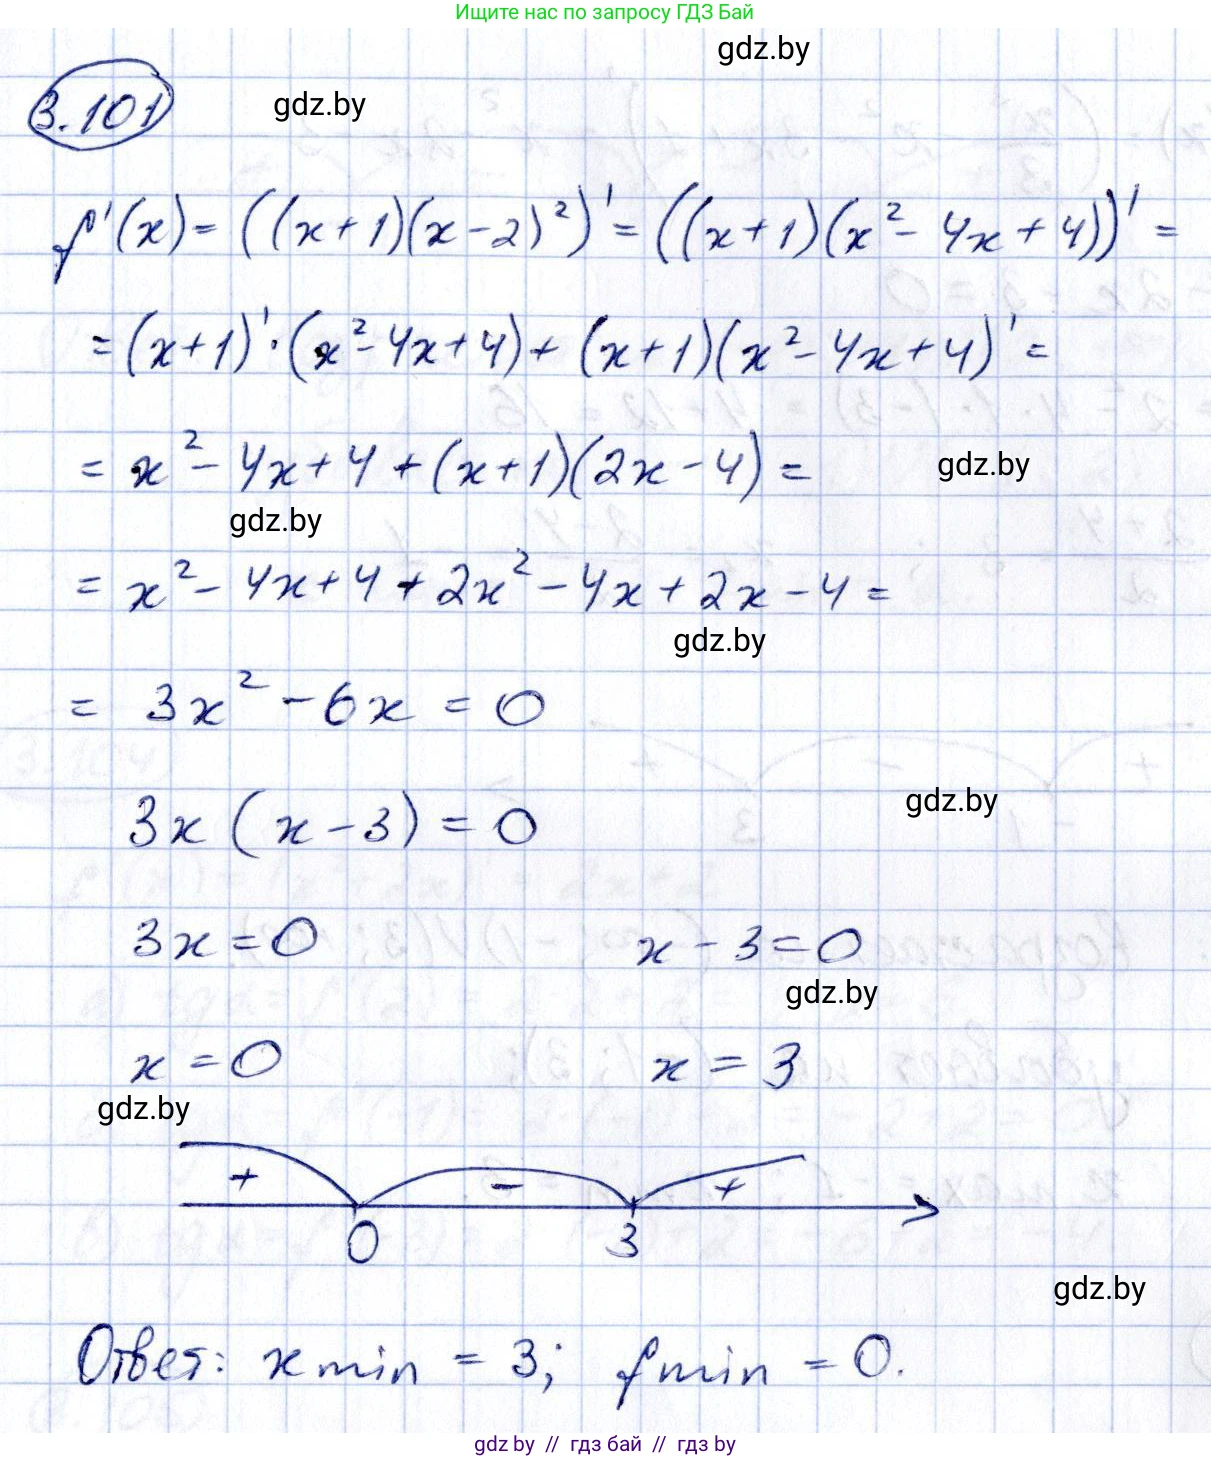 Ищите нас по запросу ГДЗ Бай
gdz.by
3.101
gdz.by
f'(x) = ((x+1)(x-2)²)' = ((x+1)(x²-4x+4))' =
= (x+1)'·(x²-4x+4) + (x+1)(x²-4x+4)' =
= x²-4x+4+(x+1)(2x-4) =
gdz.by
gdz.by
= x²-4x+4+2x²-4x+2x-4 =
gdz.by
= 3x²-6x = 0
3x(x-3) = 0
gdz.by
3x=0 x-3=0
gdz.by
x=0 x=3
gdz.by
+ - +
0 3
gdz.by
Ответ: xmin = 3; fmin = 0.
gdz by // гдз бай // гдз by